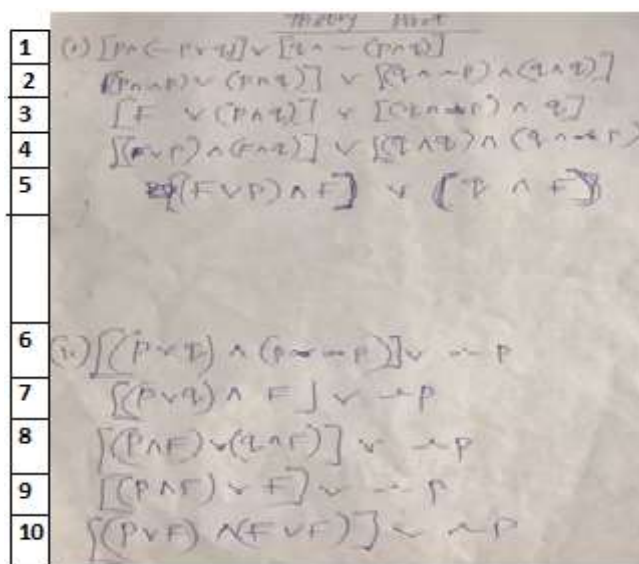 Theory Work
1 (i) [p∧(~p∨q)]∨[q∧~(p∧q)]
2 [(p∧~p)∨(p∧q)] ∨ [(q∧~p)∧(q∧q)]
3 [F ∨(p∧q)] ∨ [(q∧~p)∧ q]
4 [(F∨p)∧(F∧q)] ∨ [(q∧q)∧(q∧~p)
5 [(F∨P)∧F] ∨ [q ∧ F]
6 (ii) [(p∨q) ∧ (p~~p)]∨ ~p
7 [(p∨q) ∧ F] ∨ ~p
8 [(p∧F)∨(q∧F)] ∨ ~p
9 [(p∧F)∨ F] ∨ ~p
10 [(p∨F) ∧(F∨F)] ∨ ~p